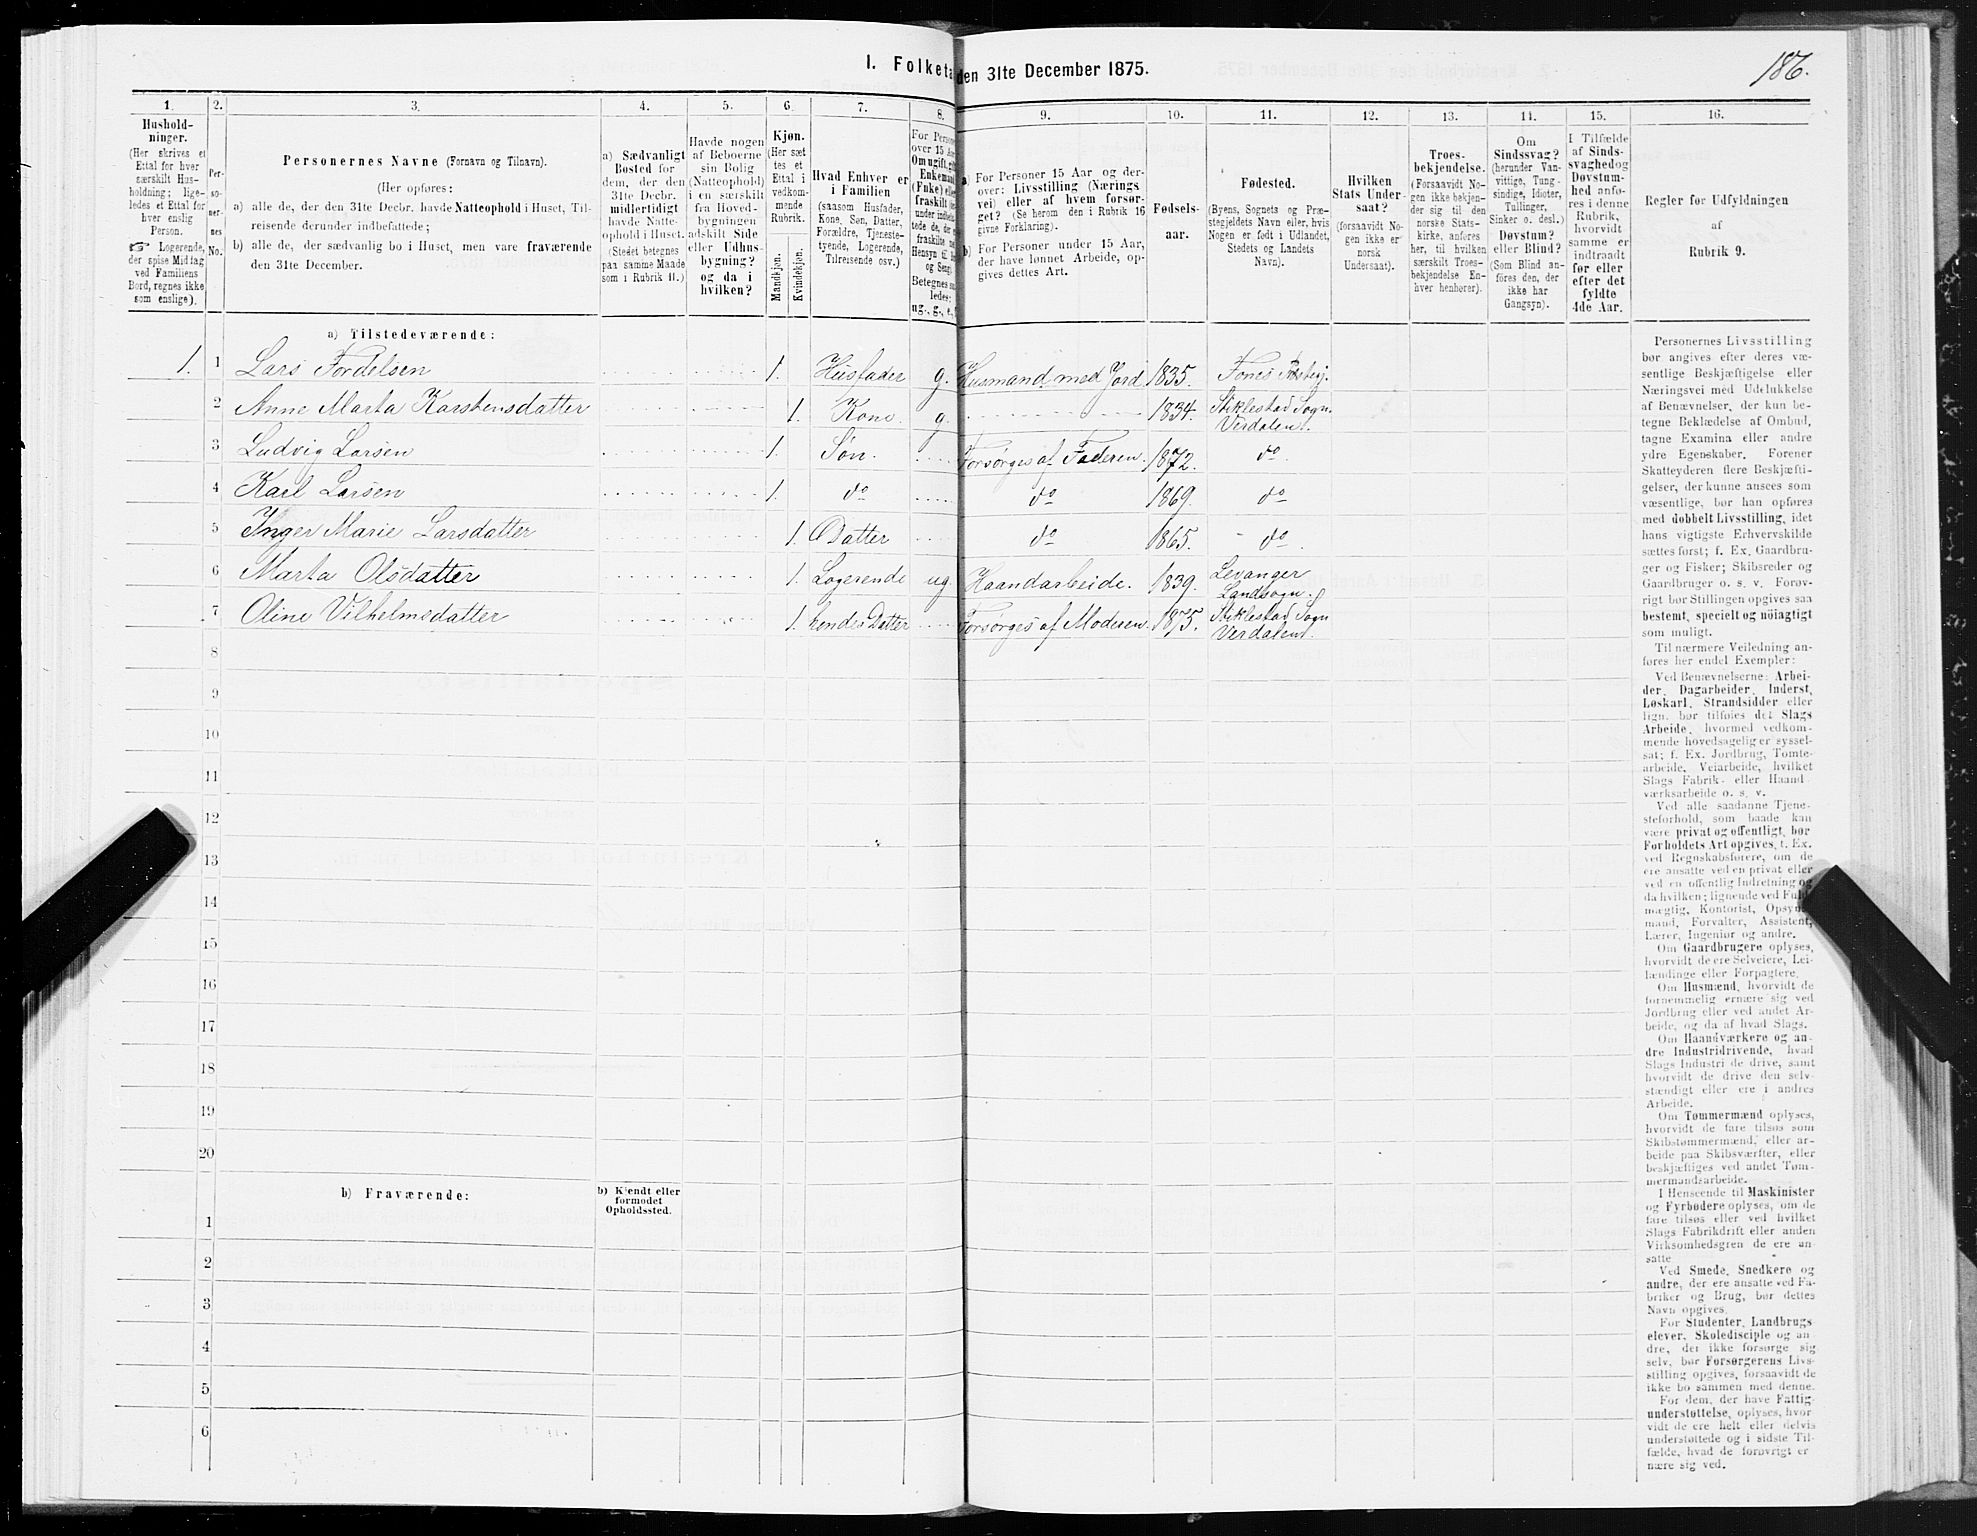 I. Folketæ
den 31te December 1875.
186.
1.
2.
3.
4.
5.
6.
7.
8.
9.
10.
11.
12.
13.
14.
15.
16.
Hushold-
ninger.
(Her skrives et
Ettal for hver
særskilt Hus-
holdning; lige-
ledes et Ettal for
hver enslig
Person.
☞ Logerende,
der spise Middag
ved Familiens
Bord, regnes ikke
som enslige).
Per-
so-
ner-
nes
No.
Personernes Navne (Fornavn og Tilnavn).
(Her opføres:
a) alle de, der den 31te Decbr. havde Natteophold i Huset, Til-
reisende derunder indbefattede;
b) alle de, der sædvanlig bo i Huset, men vare fraværende
den 31te December.
a) Sædvanligt
Bosted for
dem, der den
31te Decbr.
midlertidigt
havde Natte-
ophold i Huset.
(Stedet betegnes
paa samme Maade
som i Rubrik 11.)
Havde nogen
af Beboerne
sin Bolig
(Natteophold)
i en særskilt
fra Hoved-
bygningen
adskilt Side
eller Udhus-
bygning?
og da i
hvilken?
Kjøn.
(Her sæt
tes et
Ettal i
vedkom-
mende
Rubrik.
Mandkjøn.
Kvindekjøn.
Hvad Enhver er
i Familien
(saasom Husfader,
Kone, Søn, Datter,
Forældre, Tjeneste-
tyende, Logerende,
Tilreisende osv.)
For Persone
over 15 Aar
Om ugift, gift
Enkemand
(Enke) elle
fraskilt
under indbefa
tede de, der e
fraskilte
Hensyn til Bo
og Seng)
Betegnes saa
ledes:
ug., g., e., f
a) For Personer 15 Aar og der-
over: Livsstilling (Nærings
vei) eller af hvem forsør-
get? (Se herom den i Rubrik 16
givne Forklaring).
b) For Personer under 15 Aar,
der have lønnet Arbeide, op-
gives dettes Art.
Fødsels-
aar.
Fødested.
(Byens, Sognets og Præ-
stegjeldets Navn eller, hvis
Nogen er født i Udlandet,
Stedets og Landets
Navn).
Hvilken
Stats Under-
saat?
(forsaavidt No-
gen ikke er
norsk
Undersaat).
Troes-
bekjendelse.
(Forsaavidt No-
gen ikke bekjen-
der sig til den
norske Stats-
kirke, anføres
her, til hvilken
særskilt Troes-
bekjendelse En-
hver henhører).
Om
Sindssvag?
(herunder Van-
vittige, Tung-
sindige, Idioter,
Tullinger,
Sinker o. desl.)
Døvstum?
eller Blind?
(Som Blind an-
føres den, der
ikke har
Gangsyn).
I Tilfælde
af Sinds-
svaghed og
Døvstum-
hed anfø-
res i denne
Rubrik,
hvorvidt
samme er
indtraadt
før eller
efter det
fyldte
4de Aar.
Regler for Udfyldningen
af
Rubrik 9.
a) Tilstedeværende:
1. 1 Lars Fordelsen 1. Husfader g. Husmand med Jord 1835.
2 Anne Marta Karstensdatter 1. Kone. g. 1834. Stiklestad Sogn.
Verdalen.
3 Ludvig Larsen 1. Søn. Forsørges af Faderen. 1872. do.
4 Karl Larsen 1. do do 1869. do
5 Inger Marie Larsdatter 1. Datter do 1865. do.
6 Marta Olsdatter 1. Logerende ug. Haandarbeide. 1839. Levanger
Landsogn.
7 Oline Vilhelmsdatter 1. hendes Datter Forsørges af Moderen. 1875. Stiklestad Sogn
Verdalen.
8
9
10
11
12
13
14
15
16
17
18
19
20
b) Fraværende:
b) Kjendt eller
formodet
Opholdssted.
1
2
3
4
5
6
Personernes Livsstilling
bør angives efter deres væ-
sentlige Beskjæftigelse eller
Næringsvei med Udelukkelse
af Benævnelser, der kun be-
tegne Beklædelse af Ombud,
tagne Examina eller andre
ydre Egenskaber. Forener
Skatteyderen flere Beskjæfti-
gelser, der kunne ansees som
væsentlige, bør han opføres
med dobbelt Livsstilling, idet
hans vigtigste Erhvervskilde
sættes først; f. Ex. Gaardbru-
ger og Fisker; Skibsreder og
Gaardbruger o. s. v. Forøv-
rigt bør Stillingen opgives saa
bestemt, specielt og nöiagtigt
som muligt.
Til nærmere Veiledning an-
føres her endel Exempler:
Ved Benævnelserne: Arbei-
der, Dagarbeider, Inderst,
Løskarl, Strandsidder eller
lign. bør tilføies det Slags
Arbeide, hvormed vedkom-
mende hovedsagelig er syssel-
sat; f. Ex. Jordbrug, Tomte-
arbeide, Veiarbeide, hvilket
Slags Fabrik- eller Haand-
værksarbeide o. s. v.
Ved alle saadanne Tjene-
steforhold, som baade kan
være privat og offentligt, bør
Forholdets Art opgives, f. Ex.
ved Regnskabsførere, om de
ere ansatte ved en privat eller
ved en offentlig Indretning og
da hvilken; lignende ved Fuld-
mægtig, Kontorist, Opsyns-
mand, Forvalter, Assistent,
Lærer, Ingeniør og andre.
Om Gaardbrugere oplyses,
hvorvidt de ere Selveiere, Lei-
lændinge eller Forpagtere.
Om Husmænd, hvorvidt de
fornemmelig ernære sig ved
Jordbrug eller ved andet Ar-
beide, og da af hvad Slags.
Om Haandværkere og an-
dre Industridrivende, hvad
Slags Industri de drive, samt
hvorvidt de drive den selv-
stændigt eller ere i andres
Arbeide.
Om Tømmermænd oplyses,
hvorvidt de fare tilsøs som
Skibstømmermænd, eller ar-
beide paa Skibsværfter, eller
beskjæftiges ved andet Tøm-
mermandsarbeide.
I Henseende til Maskinister
og Fyrbødere oplyses, om de
fare tilsøs eller ved hvilket
Slags Fabrikdrift eller anden
Virksomhedsgren de ere an-
satte
Ved Smede, Snedkere og
andre, der ere ansatte ved Fa-
briker og Brug, bør dettes
Navn opgives.
For Studenter, Landbrugs
elever, Skoledisciple og an
dre, der ikke forsørge sig
selv, bør Forsørgerens Livs-
stilling opgives, forsaavidt de
ikke bo sammen med denne.
For dem, der have Fattig-
understøttelse, oplyses, hvor
vidt de ere helt eller delvis
understøttede og i sidste Til-
fælde, hvad de forøvrigt er
nære sig ved.